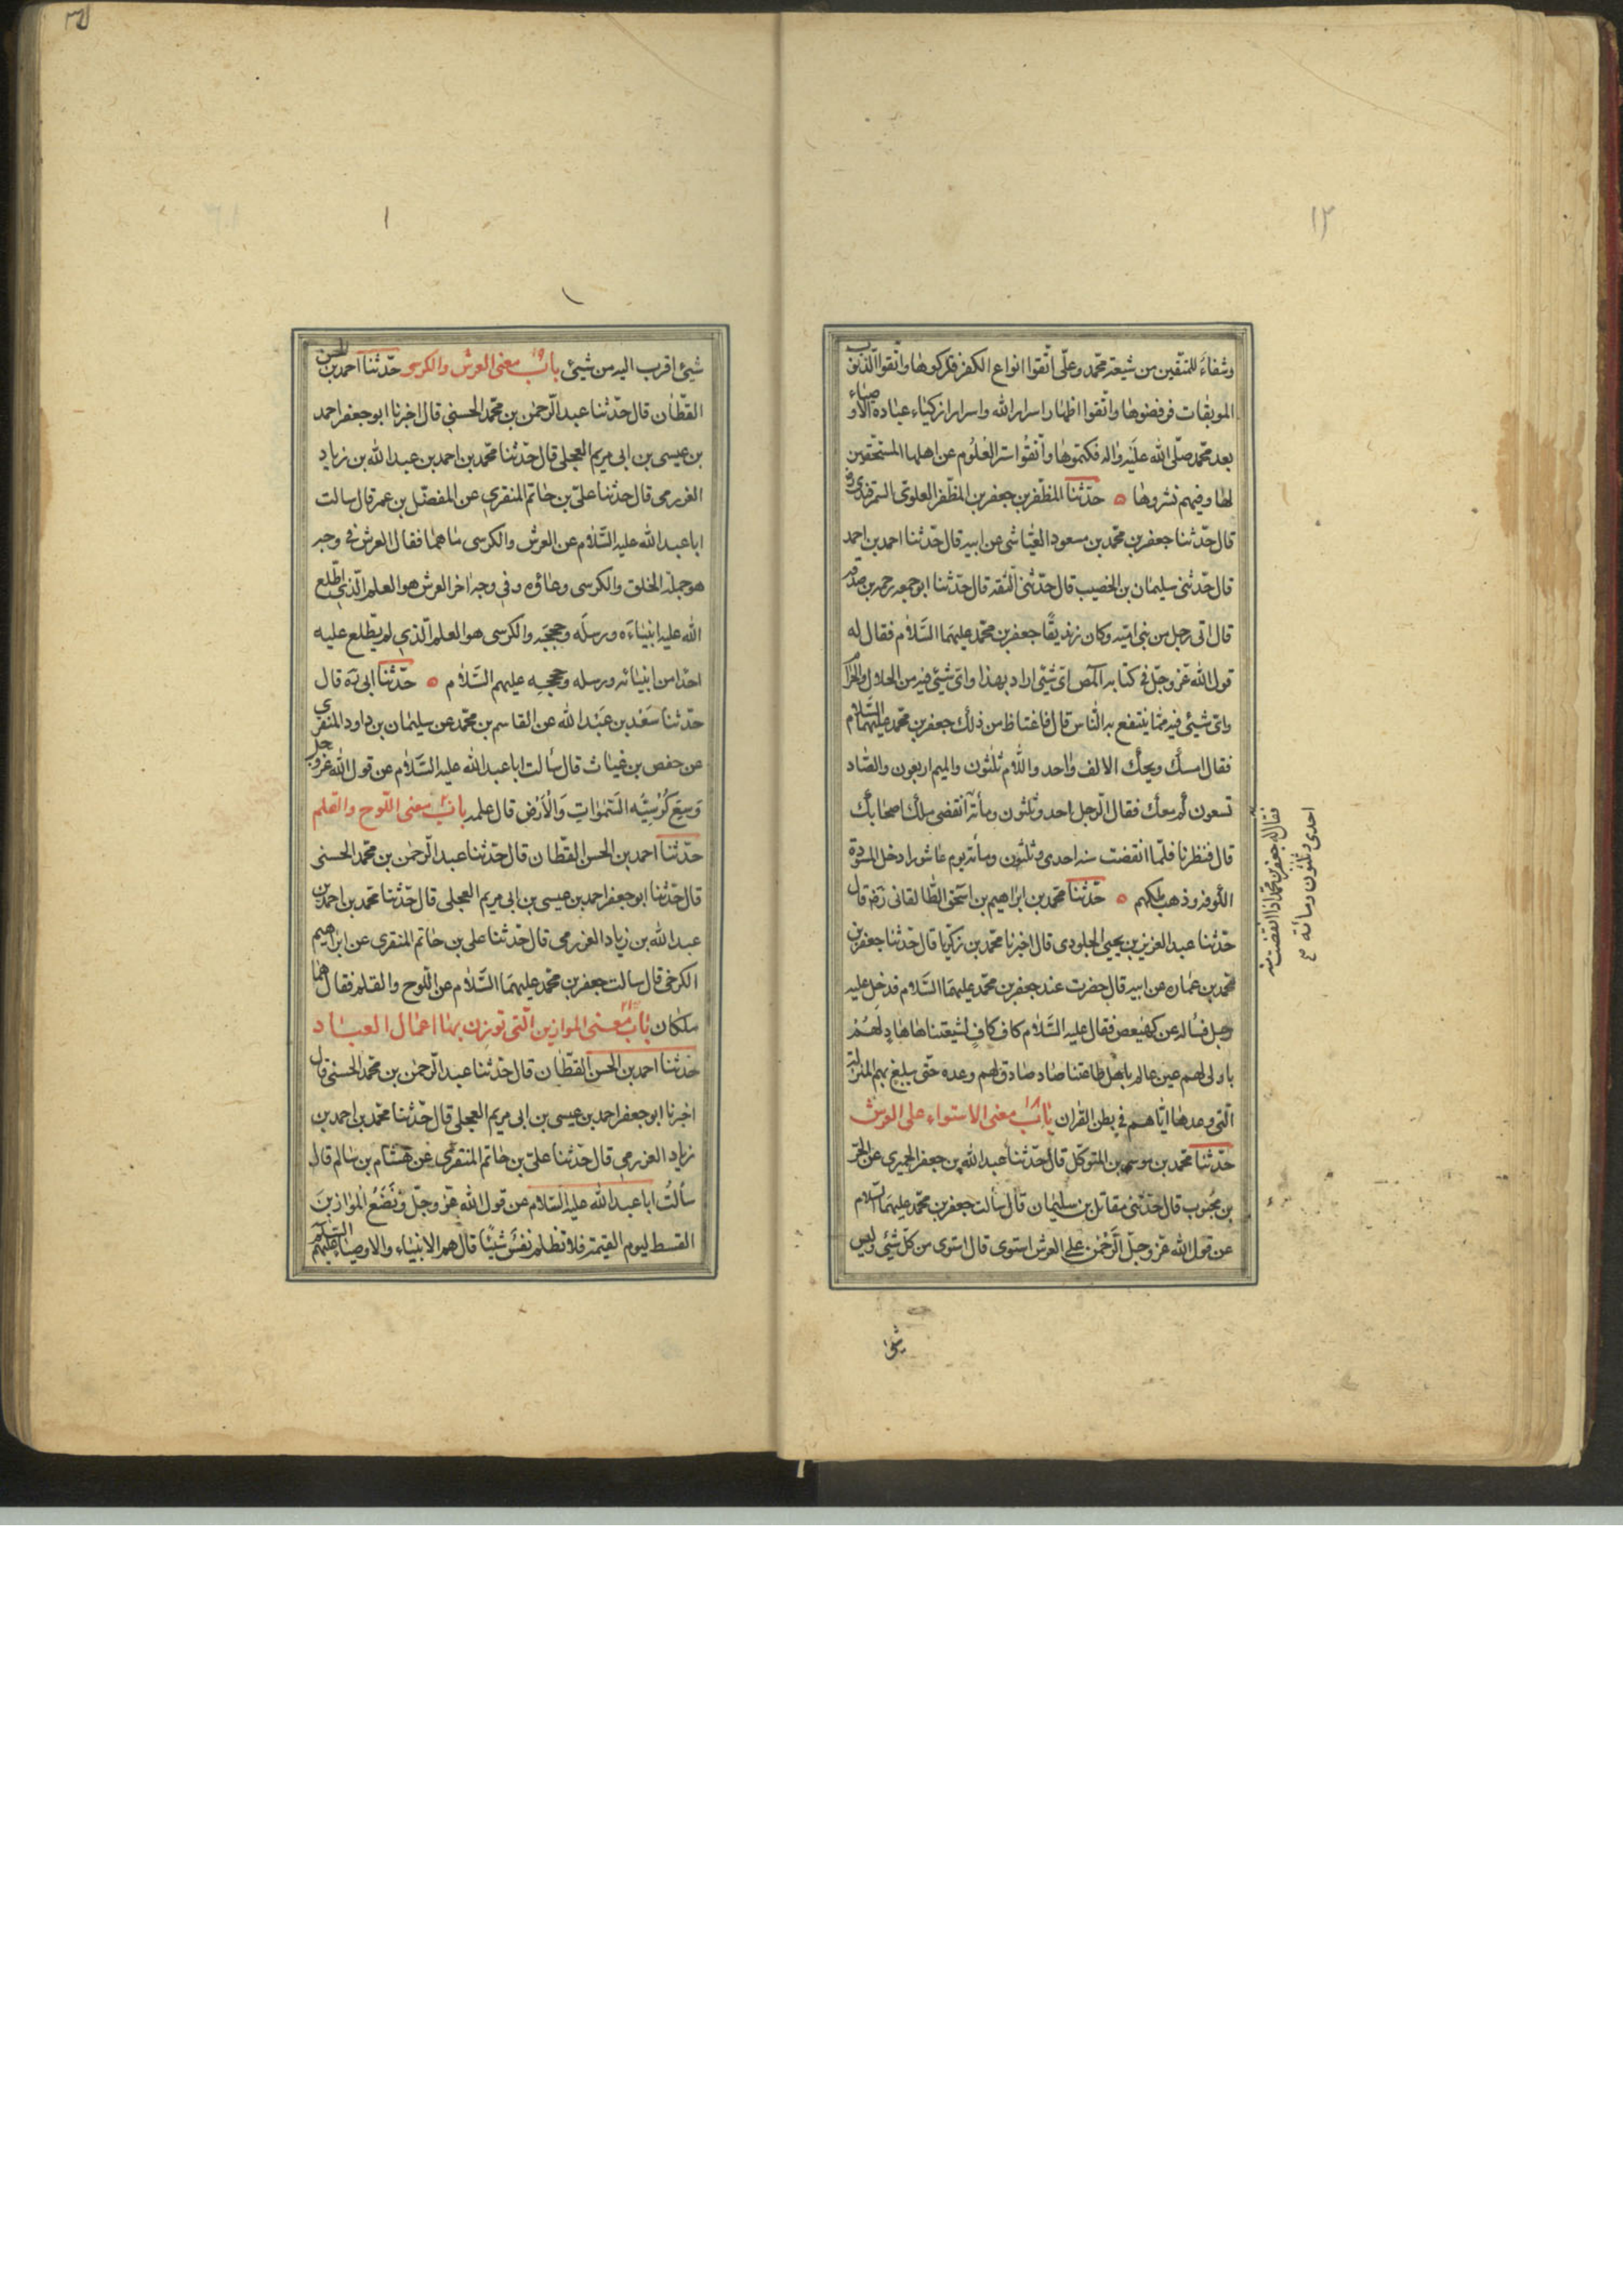 ١٢
وشفاءً للمتّقين من شيعة محمّد وعلّى اتّقوا انواع الكفر فتركوها واتّقوا الذنوب
الموبقات فرفضوها واتّقوا اظهار اسرار الله واسرار ازكياء عباده الاوصياء
بعد محمّد صلّى الله عليه واله فكتموها واتّقوا ستر العلوم عن اهلها المستحقّين
لها وفيهم نشروها ٥ حدّثنا المظفّر بن جعفر بن المظفّر العلوىّ السّمرقندى رض
قال حدّثنا جعفر بن محمّد بن مسعود العيّاشى عن ابيه قال حدّثنا احمد بن احمد
قال حدّثنى سليمان بن الخصيب قال حدّثنى الثقة قال حدّثنا ابو جمعه رحمه بن صدقه
قال اتى رجل من بنى اميّه وكان زنديقًا جعفر بن محمّد عليهما السّلام فقال له
قول الله عزّ وجلّ فى كتابه المص اىّ شيئى اراد بهذا واىّ شيئى فيه من الحلال والحرام
واىّ شيئى فيه ممّا ينتفع به النّاس قال فاغتاظ من ذلك جعفر بن محمّد عليهما السّلام
فقال امسك ويحك الالف واحد واللّام ثلثون والميم اربعون والصّاد
تسعون كم معك فقال الرجل احد وثلثون ومأته انقضى ملك اصحابك
قال فنظرنا فلمّا انقضت سنه احدى وثلثون ومأته يوم عاشورا دخل المسوّدة
الكوفه وذهب ملكهم ٥ حدّثنا محمّد بن ابراهيم بن اسحق الطّالقانى رض قال
حدّثنا عبد العزيز بن يحيى الجلودى قال اخبرنا محمّد بن زكريّا قال حدّثنا جعفر بن
محمّد بن عماره عن ابيه قال حضرت عند جعفر بن محمّد عليهما السّلام فدخل عليه
رجل فسأله عن كهيعص فقال عليه السّلام كاف كافٍ لشيعتنا ها هادٍ لهم
يا ولى لهم عين عالم باهل طاعتنا صاد صادق لهم وعده حتّى يبلغ بهم المنزلة
الّتى وعدها ايّاهم فى بطن القران باب ١٨ معنى الاستواء على العرش
حدّثنا محمّد بن موسى بن المتوكّل قال حدّثنا عبد الله بن جعفر الحميرى عن الحسن
بن محبوب قال حدّثنى مقاتل بن سليمان قال سألت جعفر بن محمّد عليهما السّلام
عن قول الله عزّ وجلّ الرّحمن على العرش استوى قال استوى من كلّ شيئى وليس
شيئ
فقال له جعفر بن محمّد اذا انقضت سنه
احدى وثلثون ومأته
شيئ اقرب اليه من شيئى باب ١٩ معنى العرش والكرسى حدّثنا احمد بن الحسن
القطّان قال حدّثنا عبد الرّحمن بن محمّد الحسنى قال اخبرنا ابو جعفر احمد
بن عيسى بن ابى مريم العجلى قال حدّثنا محمّد بن احمد بن عبد الله بن زياد
العرزمى قال حدّثنا علىّ بن حاتم المنقرى عن المفضّل بن عمر قال سالت
ابا عبد الله عليه السّلام عن العرش والكرسى ما هما فقال العرش فى وجه
هو جملة الخلق والكرسى وعاؤه وفى وجه اخر العرش هو العلم الّذى اطّلع
الله عليه انبياءه ورسله وحججه والكرسى هو العلم الّذى لم يطّلع عليه
احدا من انبيائه ورسله وحججه عليهم السّلام ٥ حدّثنا ابى ره قال
حدّثنا سعد بن عبد الله عن القاسم بن محمّد عن سليمان بن داود المنقرى
عن حفص بن غياث قال سألت ابا عبد الله عليه السّلام عن قول الله عزّ وجلّ
وَسِعَ كُرْسِيُّه السَّمٰوات وَالْاَرْض قال علمه باب ٢٠ معنى اللّوح والقلم
حدّثنا احمد بن الحسن القطّان قال حدّثنا عبد الرّحمن بن محمّد الحسنى
قال حدّثنا ابو جعفر احمد بن عيسى بن ابى مريم العجلى قال حدّثنا محمد بن احمد بن
عبد الله بن زياد العرزمى قال حدّثنا على بن حاتم المنقرى عن ابراهيم
الكرخى قال سالت جعفر بن محمّد عليهما السّلام عن اللّوح والقلم فقال هما
ملكان باب ٢١ معنى الموازين الّتى توزن بها اعمال العباد
حدّثنا احمد بن الحسن القطّان قال حدّثنا عبد الرّحمن بن محمّد الحسنى قال
اخبرنا ابو جعفر احمد بن عيسى بن ابى مريم العجلى قال حدّثنا محمّد بن احمد بن
زياد العرزمى قال حدّثنا علىّ بن حاتم المنقرى عن هشام بن سالم قال
سألتُ ابا عبد الله عليه السّلام عن قول الله عزّ وجلّ وَنَضَعُ الموازين
القسط ليوم القيمة فلا تظلم نفسٌ شيئًا قال هم الانبياء والاوصياء عليهم السّلام